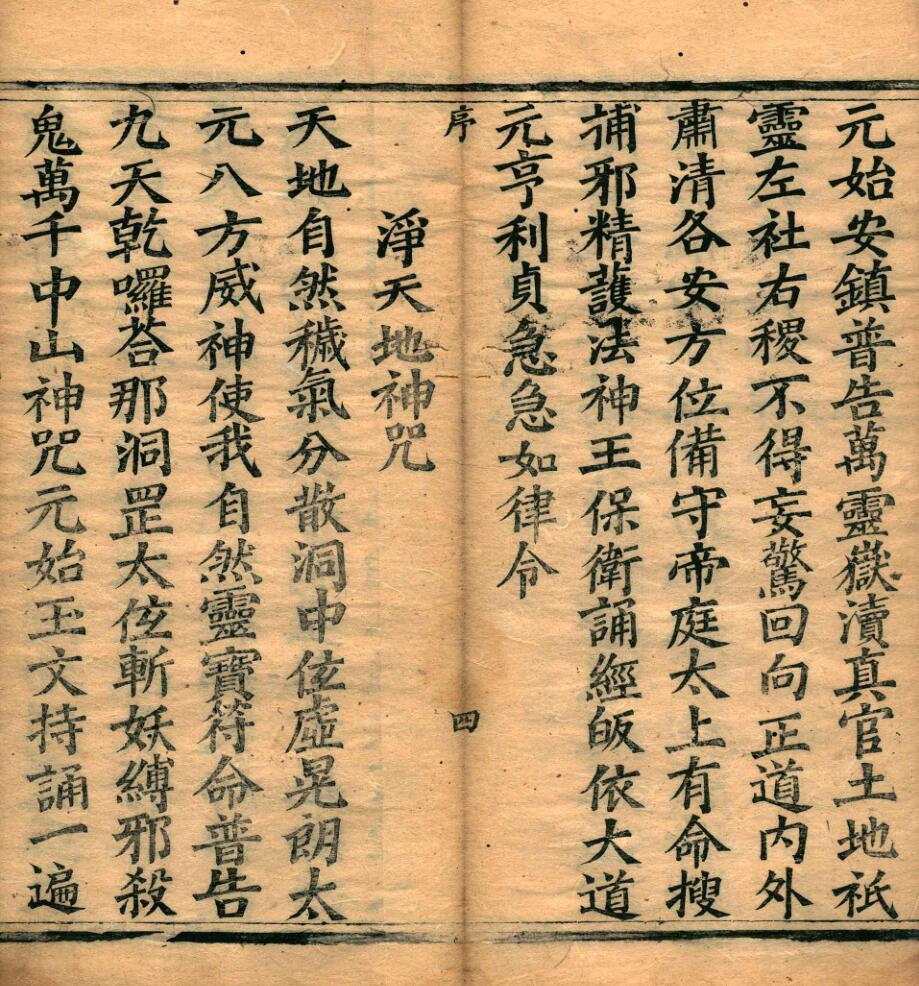 元始安鎮普告萬靈嶽瀆真官土地祇
靈左社右稷不得妄驚回向正道內外
肅清各安方位備守帝庭太上有命搜
捕邪精護法神王保衛誦經皈依大道
元亨利貞急急如律令
序 四
淨天地神咒
天地自然穢氣分散洞中伭虛晃朗太
元八方威神使我自然靈寶符命普告
九天乾囉荅那洞罡太伭斬妖縛邪殺
鬼萬千中山神咒元始玉文持誦一遍